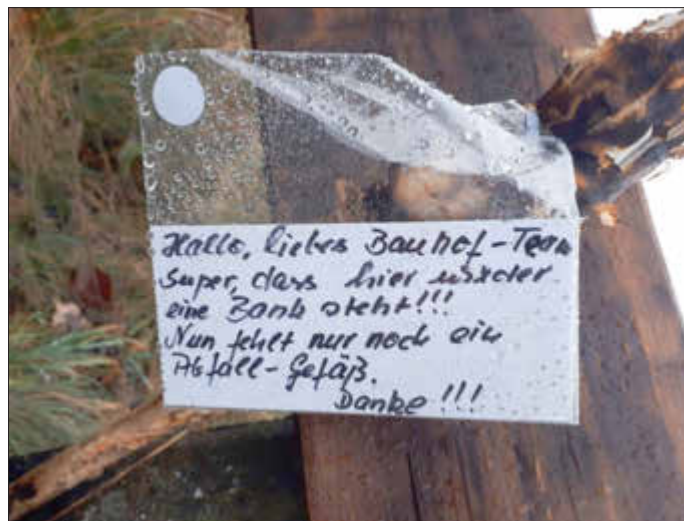 Hallo, liebes Bauhof-Team
Super, dass hier wieder
eine Bank steht!!!
Nun fehlt nur noch ein
Abfall-Gefäß.
Danke!!!